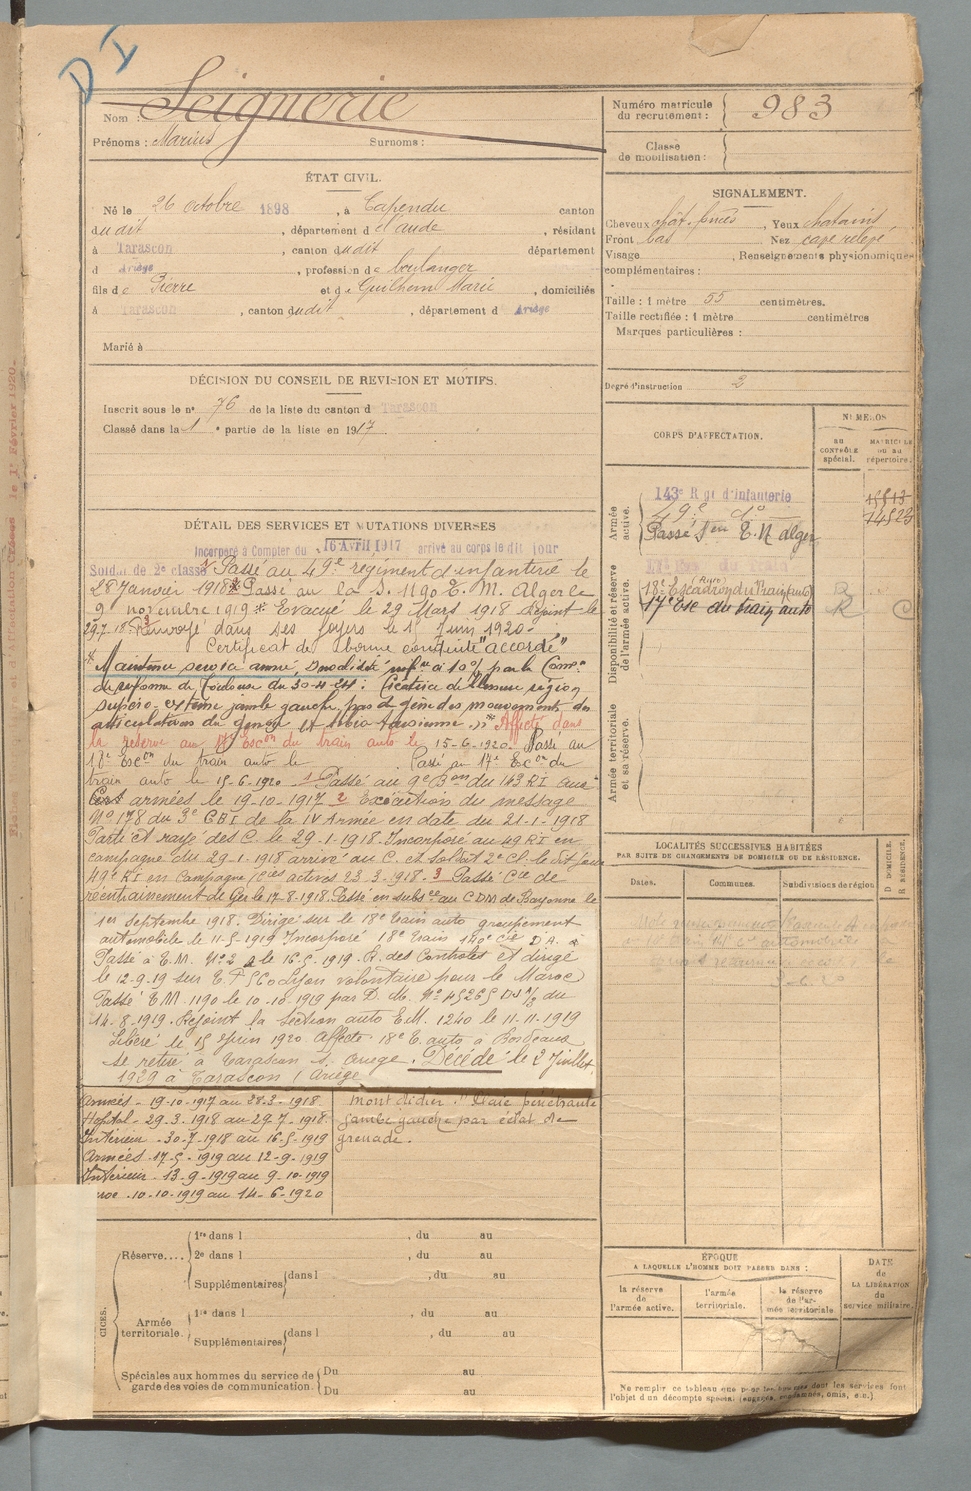 D I
Nom : Seignerie
Prénoms : Marius Surnoms :
Numéro matricule du recrutement : 983
Classe de mobilisation :
ÉTAT CIVIL.
Né le 26 octobre 1898, à Capendu canton
dudit, département d l'aude, résidant
à Tarascon, canton dudit département
d Ariège, profession de boulanger
fils de Pierre et de Guilhem Marie, domiciliés
à Tarascon, canton dudit, département d Ariège
Marié à
SIGNALEMENT.
Cheveux chât. foncés, Yeux chatains
Front bas Nez cave relevé
Visage , Renseignements physionomiques
complémentaires :
Taille : 1 mètre 55 centimètres.
Taille rectifiée : 1 mètre centimètres
Marques particulières :
Degré d'instruction 2
DÉCISION DU CONSEIL DE REVISION ET MOTIFS.
Inscrit sous le n° 76 de la liste du canton d Tarascon
Classé dans la 1e partie de la liste en 1917
CORPS D'AFFECTATION.
NUMÉROS
au CONTRÔLE spécial.
MATRICULE ou au répertoire.
Armée active.
143e Rgt d'Infanterie 15513
49e do 14523
Passé Son E.M. alger
Disponibilité et réserve de l'armée active.
18e Escadron du Train (auto) R
17e Esc du train auto R C
Armée territoriale et sa réserve.
DÉTAIL DES SERVICES ET MUTATIONS DIVERSES
Incorporé à Compter du 16 Avril 1917 arrivé au corps le dit jour
Soldat de 2e classe 1 Passé au 49e régiment d'infanterie le
28 Janvier 1918 2 Passé au la S. 1190 E. M. Alger le
9 novembre 1919 * Evacué le 29 Mars 1918 Rejoint le
29.7.18. 3 Renvoyé dans ses foyers le 15 Juin 1920 -
Certificat de bonne conduite "accordé"
* Maintenu service armé, invalidité infre à 10% par la Comon
de réforme de Toulouse du 30-4-24 : Cicatrice de 11mm région
supéro-externe jambe gauche, pas de gêne des mouvements des
articulations du genou et tibio-tarsienne. Affecté dans
la réserve au 17e Escon du train auto le 15-6-1920. Passé au
18e Escon du train auto le Passé au 17e Escon du
train auto le 15-6-1920 1 Passé au 9e Bon du 143 RI aux
armées le 19-10-1917 2 Exécution du message
No 178 du 3e CBI de la IV Armée en date du 21-1-1918
Parti et rayé des C. le 29-1-1918. Incorporé au 49 RI en
campagne du 29-1-1918 arrivé au C. et soldat 2e Cl. le dit jour
49e RI en Campagne Cies actives 23.3.1918. 3 Passé Cie de
réentrainement de Ger le 17-8-1918. Passé en subsce au CDM de Bayonne le
1er septembre 1918. Dirigé sur le 18e train auto groupement
automobile le 11-5-1919 Incorporé 18e train 140e Cie D A.
Passé à E.M. No 2 le 16-5-1919. R. des Controles et dirigé
le 12-9-19 sur E.T.S Co Lyon volontaire pour le Maroc
Passé E M. 1190 le 10-10-1919 par D. M. No 45265 du
14-8-1919. Rejoint la Section auto E.M. 1240 le 11-11-1919
Libéré le 15 Juin 1920. Affecté 18e E. auto à Bordeaux
se retire à Tarascon s. Ariège. Décédé le 2 Juillet
1929 à Tarascon (Ariège
Armées - 19-10-1917 au 28-3-1918
Hopital - 29-3-1918 au 29-7-1918
Intérieur - 30-7-1918 au 16-5-1919
Armées - 17-5-1919 au 12-9-1919
Intérieur - 13-9-1919 au 9-10-1919
Maroc - 10-10-1919 au 14-6-1920
Mont didier. Plaie pénétrante
jambe gauche par éclat de
grenade.
LOCALITÉS SUCCESSIVES HABITÉES
PAR SUITE DE CHANGEMENTS DE DOMICILE OU DE RÉSIDENCE.
Dates. Communes. Subdivisions de région
D DOMICILE. R RÉSIDENCE.
Réserve....
1re dans l , du au
2e dans l , du au
Supplémentaires dans l , du au
Armée territoriale.
1re dans l , du au
Supplémentaires dans l , du au
Spéciales aux hommes du service de garde des voies de communication.
Du au
Du au
ÉPOQUE
A LAQUELLE L'HOMME DOIT PASSER DANS :
la réserve de l'armée active.
l'armée territoriale.
la réserve de l'armée territoriale
DATE de LA LIBÉRATION du service militaire.
Ne remplir ce tableau que pour les hommes dont les services font
l'objet d'un décompte spécial (engagés, condamnés, omis, etc.).